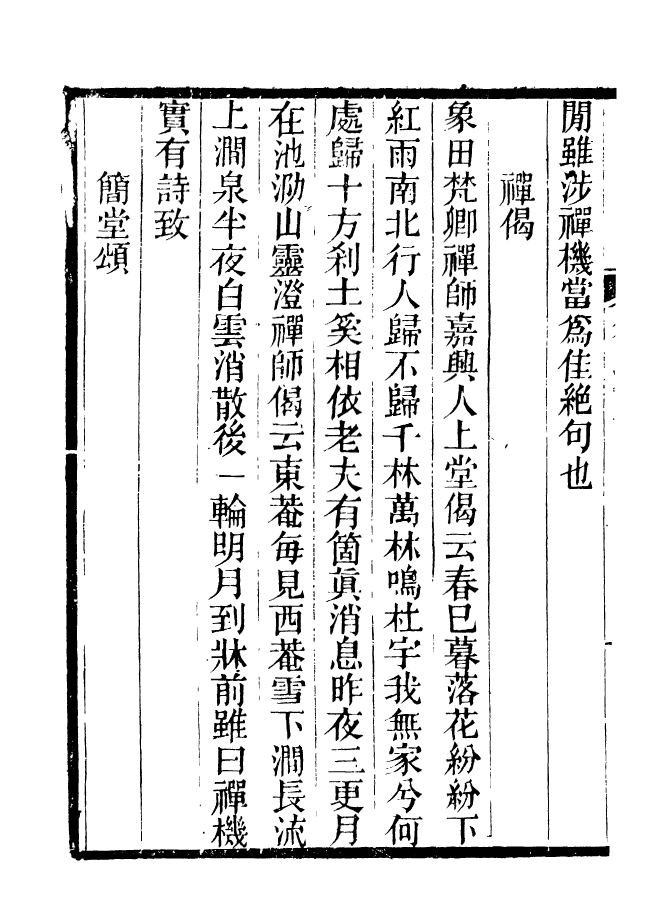 閒雖涉禪機當爲佳絕句也
禪偈
象田梵卿禪師嘉興人上堂偈云春已暮落花紛紛下
紅雨南北行人歸不歸千林萬林鳴杜宇我無家兮何
處歸十方刹土奚相依老夫有箇眞消息昨夜三更月
在池泐山靈澄禪師偈云東菴每見西菴雪下澗長流
上澗泉半夜白雲消散後一輪明月到牀前雖曰禪機
實有詩致
簡堂頌